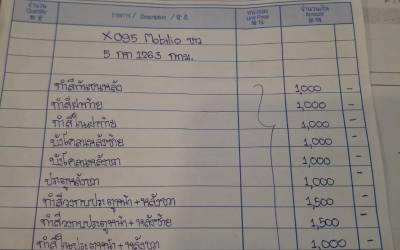 จำนวน Quantity 數量 รายการ / Description / 項目 หน่วยละ Unit Price 單價 จำนวนเงิน Amount 金額
X095 Mobilio ขาว
5 กก 1263 กทม.
ทำสีกันชนหลัง 1,000 -
ทำสีฝาท้าย 1,000 -
ทำสีในฝาท้าย 1,000 -
บังโคลนหลังซ้าย 1,000 -
บังโคลนหลังขวา 1,000 -
ประตูหลังขวา 1,000 -
ทำสีวงกบประตูหน้า + หลังขวา 1,500 -
ทำสีวงกบประตูหน้า + หลังซ้าย 1,500 -
1,000 -